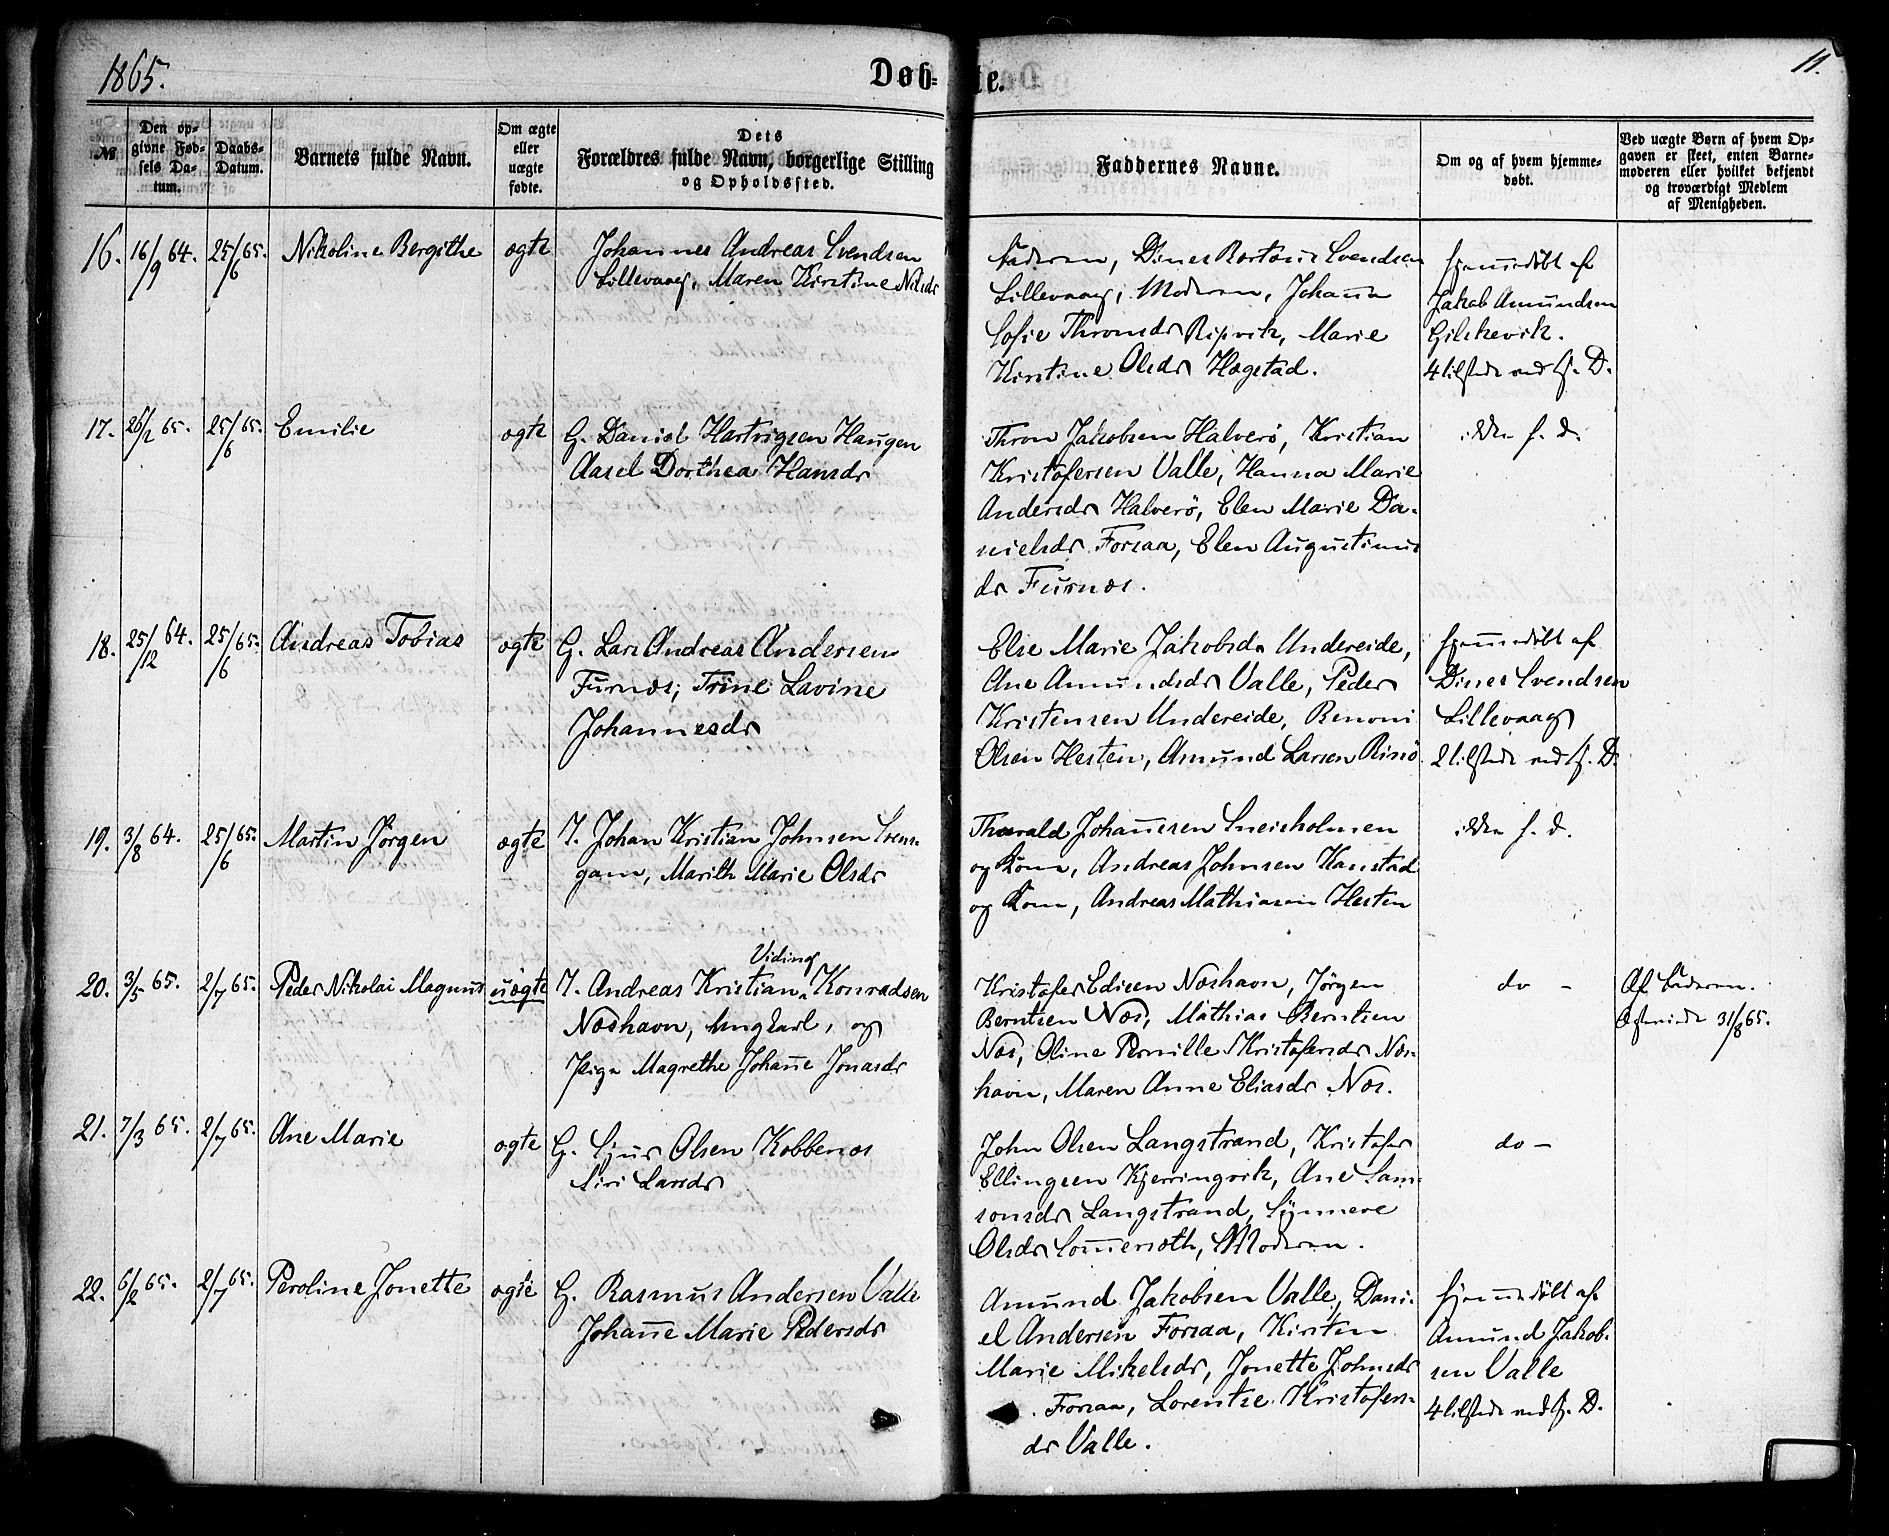 1865.
Døb-
te.
11.
№
Den op-
givne Fød-
sels Da-
tum.
Daabs-
Datum.
Barnets fulde Navn.
Om ægte
eller
uægte
fødte.
Dets
Forældres fulde Navn, borgerlige Stilling
og Opholdssted.
Faddernes Navne.
Om og af hvem hjemme-
døbt.
Ved uægte Børn af hvem Op-
gaven er skeet, enten Barne-
moderen eller hvilket bekjendt
og troværdigt Medlem
af Menigheden.
16. 16/9 64. 25/6 65. Nikoline Bergithe ægte
Johannes Andreas Svendsen
Lillevaag, Maren Kirstine Nilsdr
Faderen, Dines Svendsen
Lillevaag, Moderen, Johanna
Sofie Thronsdr Ripvik, Marie
Kirstine Olsdr Hægstad.
hjemmedøbt af
Jakob Amundsen
Gilskevik.
4 tilstede ved hj. D.
17. 26/2 65. 25/6 65. Emilie ægte
G. Daniel Hartvigsen Haugen
Aasel Dorthea Hansdr
Thron Jakobsen Halverö, Kristian
Kristofersen Valle, Hanna Marie
Andersdr Halverö, Elen Marie Da-
nielsdr Forsaa, Elen Augustinus
dr Furnæs.
ikke h. d.
18. 25/12 64. 25/6 65. Andreas Tobias ægte
G. Lars Andreas Andersen
Furnæs, Trine Lavine
Johannesdr
Else Marie Jakobsdr Undereide,
Ane Amundsdr Valle, Peder
Kristensen Undereide, Benoni
Olsen Hesten, Amund Larsen Risö
hjemmedøbt af
Dines Svendsen
Lillevaag
2 tilstede ved hj. D.
19. 3/8 64. 25/6 65. Martin Jörgen ægte
I. Johan Kristian Johnsen Svens-
gam, Marith Marie Olsdr
Tharald Johannssen Sneisholmen
og Kone, Andreas Johnsen Kanstad
og Kone, Andreas Mathiasen Hesten
ikke h. d.
20. 3/5 65. 2/7 65. Peder Nikolai Magnus uægte
Viding
I. Andreas Kristian Konradsen
Næshavn, Ungkarl, og
Pige Magrethe Johanne Jonasdr
Kristofer Edisen Næshavn, Jörgen
Berntsen Næs, Mathias Berntsen
Næs, Oline Pernille Kristofersdr Næs-
havn, Maren Anne Eliasdr Næs.
do -
Af Faderen.
31/8 65.
21. 7/3 65. 2/7 65. Ane Marie ægte
G. Sjur Olsen Kobbenæs
Siri Larsdr
John Olsen Langstrand, Kristofer
Ellingsen Kjerringvik, Ane Sam-
sonsdr Langstrand, Synnere
Olsdr Sommersæth, Moderen.
do -
22. 6/2 65. 2/7 65. Peroline Jonette ægte
G. Rasmus Andersen Valle
Johanne Marie Pedersdr
Amund Jakobsen Valle, Dani-
el Andersen Forsaa, Kirsten
Marie Mikelsdr, Jonette Johnsdr
Forsaa, Lorentse Kristofers-
dr Valle.
hjemmedøbt af
Amund Jakob-
sen Valle
4 tilstede ved hj. D.